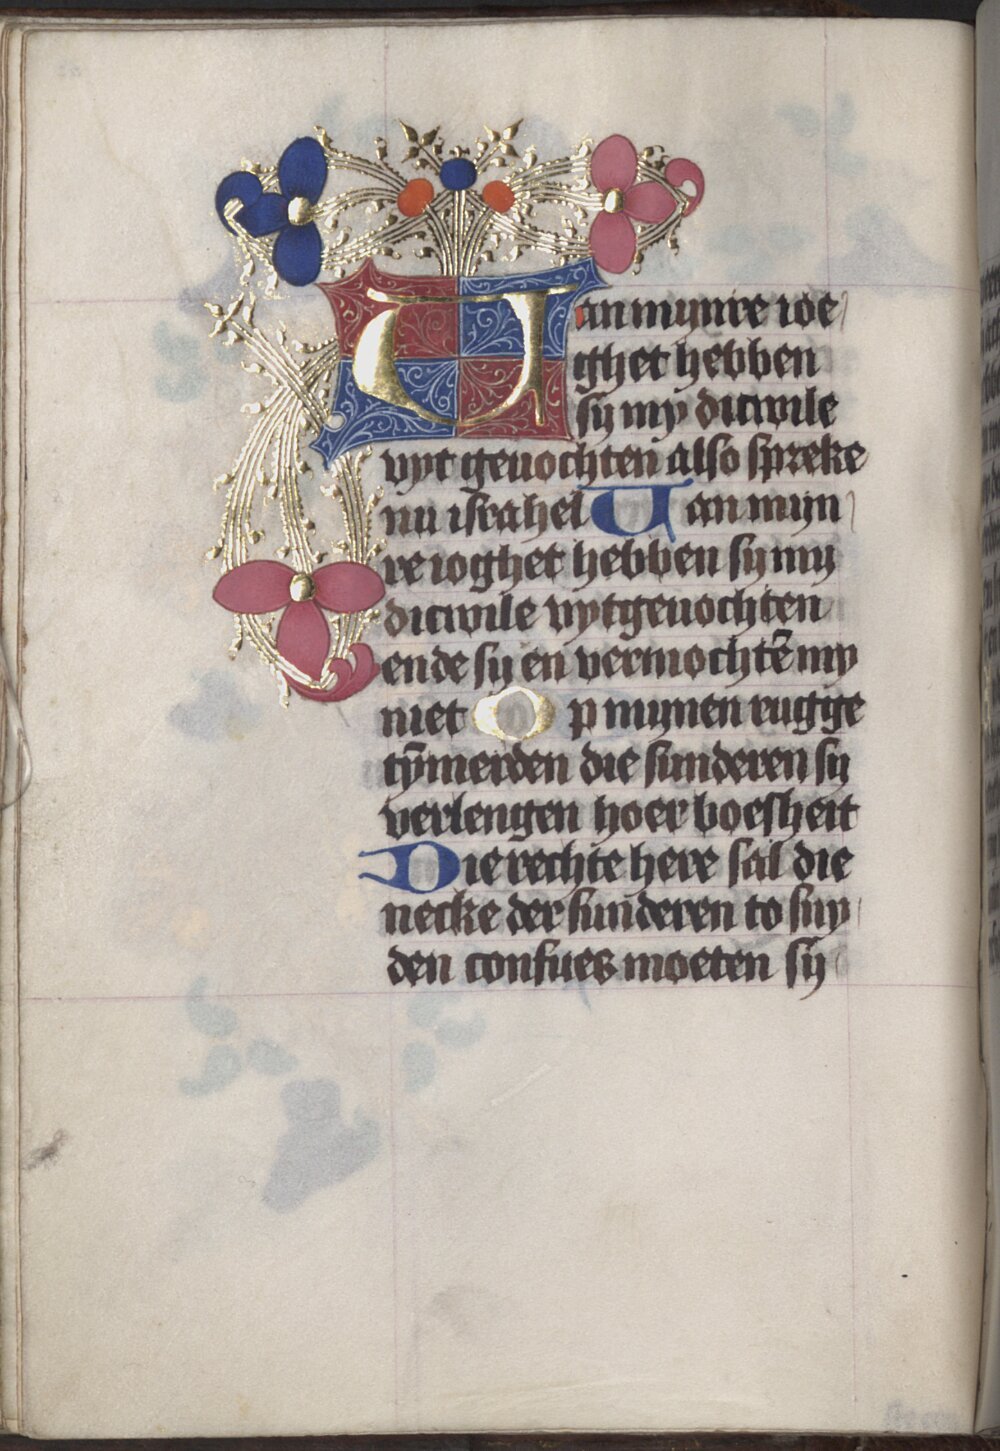 Van mynre ioe
ghet hebben
sy my dicwile
vyt geuochten also spreke
nu israhel Van myn
re ioghet hebben sy my
dicwile vytgeuochten
ende sy en vermochtē my
niet Op mynen rugge
tȳmerden die sunderen sy
verlengen hoer boesheit
Die rechte here sal die
necke der sunderen to sny
den confues moeten sy